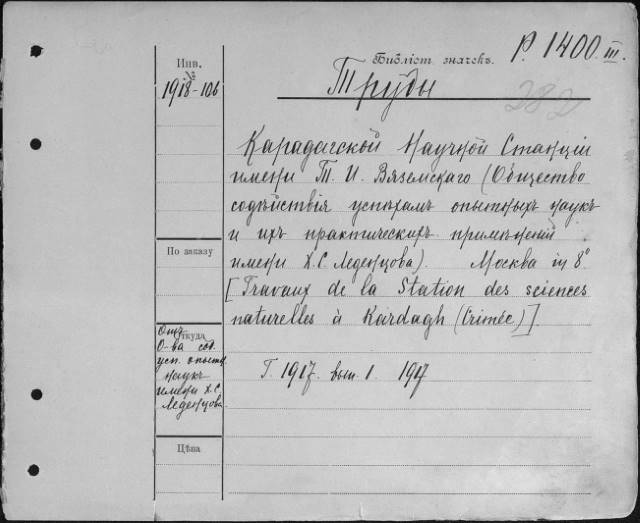 Инв.
1918-106
Библіот. значекъ.
P. 1400 III.
Труды
282
Карадагской Научной Станціи
имени Т. И. Вяземскаго (Общество
содѣйствія успѣхамъ опытныхъ наукъ
и ихъ практическихъ примѣненій
имени Х.С. Леденцова). Москва in 8°
[Travaux de la Station des sciences
naturelles à Karadagh (Crimée)].
По заказу
Откуда
Отъ
О-ва сод.
усп. опытн.
наукъ
имени Х.С.
Леденцова
Т. 1917. вып. 1. 1917
Цѣна